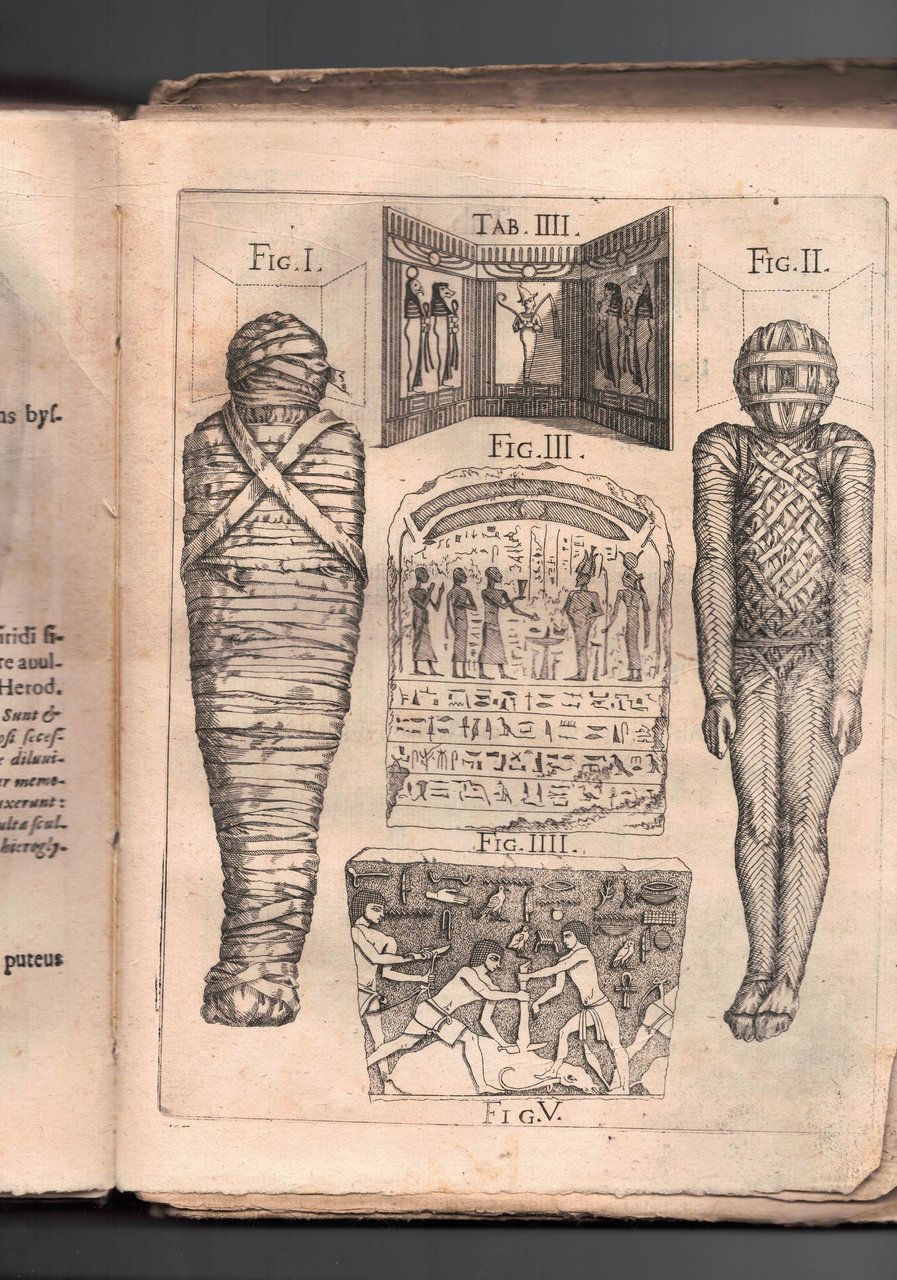 ns byſ-
ſitidi ſi-
re avul-
Herod.
Sunt &
oſi ſeceſ-
e diluvi-
ur memo-
uxerunt:
ulta ſcul-
hierogly-
puteus
TAB. IIII.
FIG. I.
FIG. II.
FIG. III.
FIG. IIII.
FIG. V.